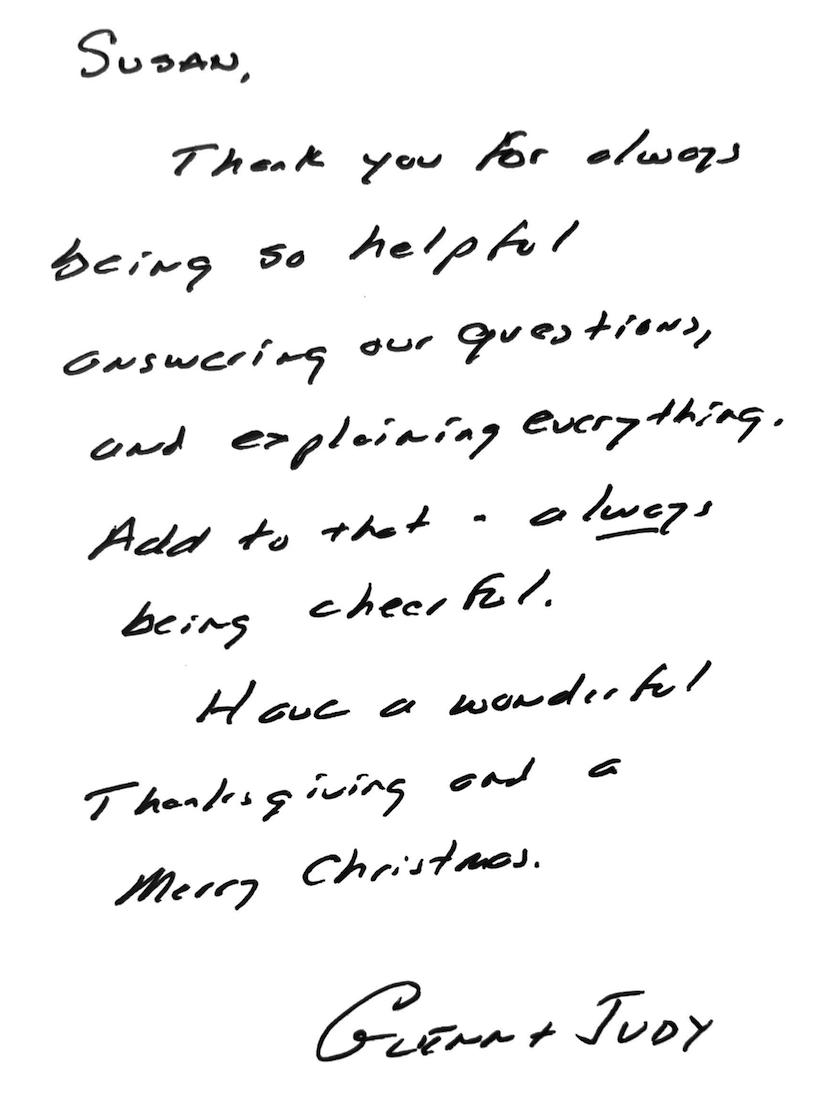 Susan,
Thank you for always
being so helpful
answering our questions,
and explaining everything.
Add to that - always
being cheerful.
Have a wonderful
Thanksgiving and a
Merry Christmas.
Glenn + Judy